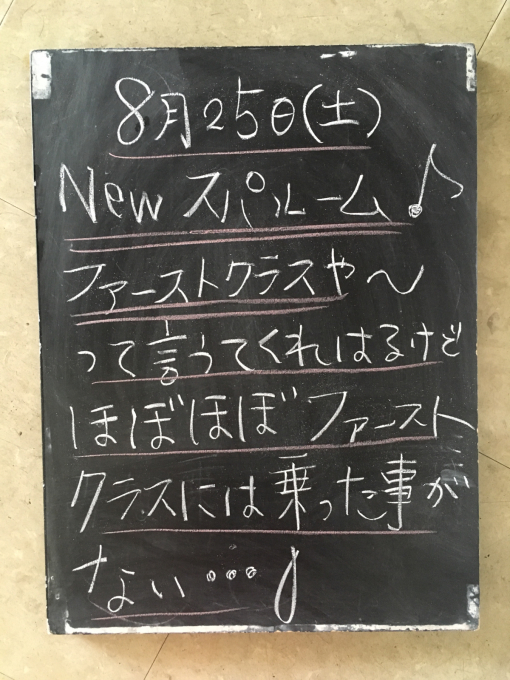 8月25日(土)
New スパルーム♪
ファーストクラスや〜
って言うてくれはるけど
ほぼほぼファースト
クラスには乗った事が
ない…